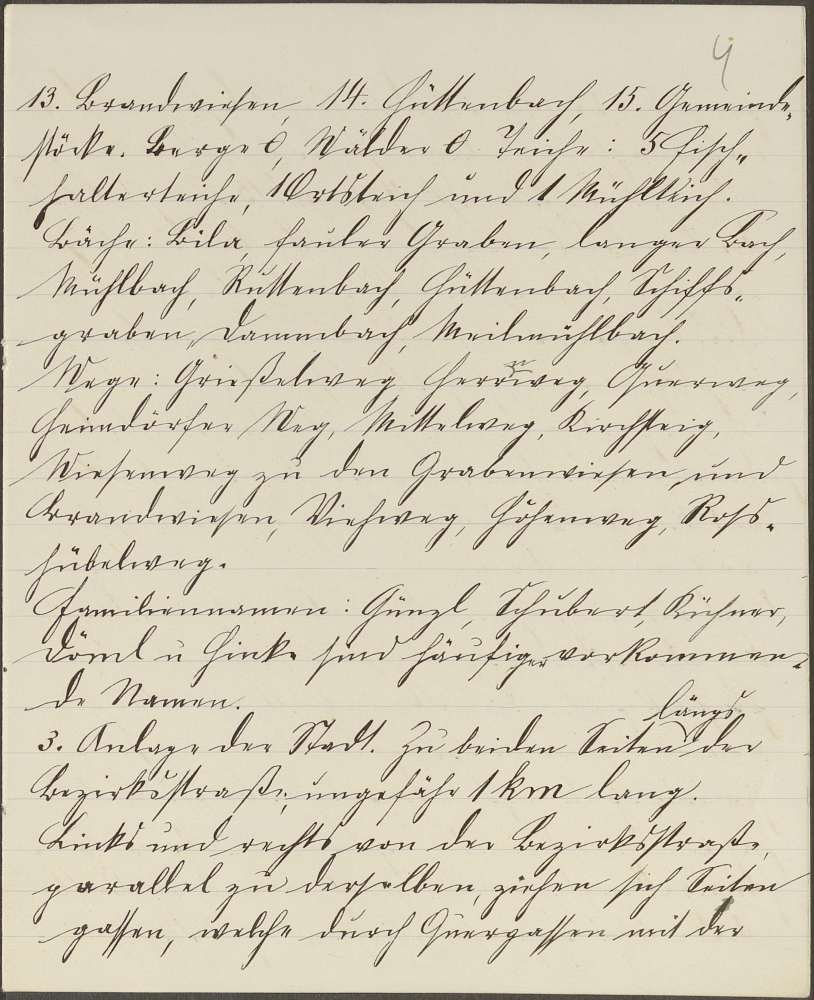 4
13. Brandwiesen, 14. Hüttenbach, 15. Gemeinde-
stöcke. Berge 0, Wälder 0. Teiche: 5 Fisch-
halterteiche, 1 Ortsteich und 1 Mühlteich.
Bäche: Bila, fauler Graben, langer Bach,
Mühlbach, Ruttenbach, Hüttenbach, Schiffs-
graben, Dammbach, Weilmühlbach.
Wege: Grießelweg, Herrnweg, Querweg,
Heimdörfer Weg, Mittelweg, Kirchsteig,
Wiesenweg zu den Grabenwiesen und
Brandwiesen, Viehweg, Höhenweg, Ross-
hübelweg.
Familiennamen: Günzl, Schubert, Püchner,
Döml u Hinke sind häufiger vorkommen-
de Namen.
3. Anlage der Stadt. Zu beiden Seiten längs der
Bezirksstraße, ungefähr 1 km lang.
Links und rechts von der Bezirksstraße,
parallel zu derselben, ziehen sich Seiten
gassen, welche durch Quergassen mit der